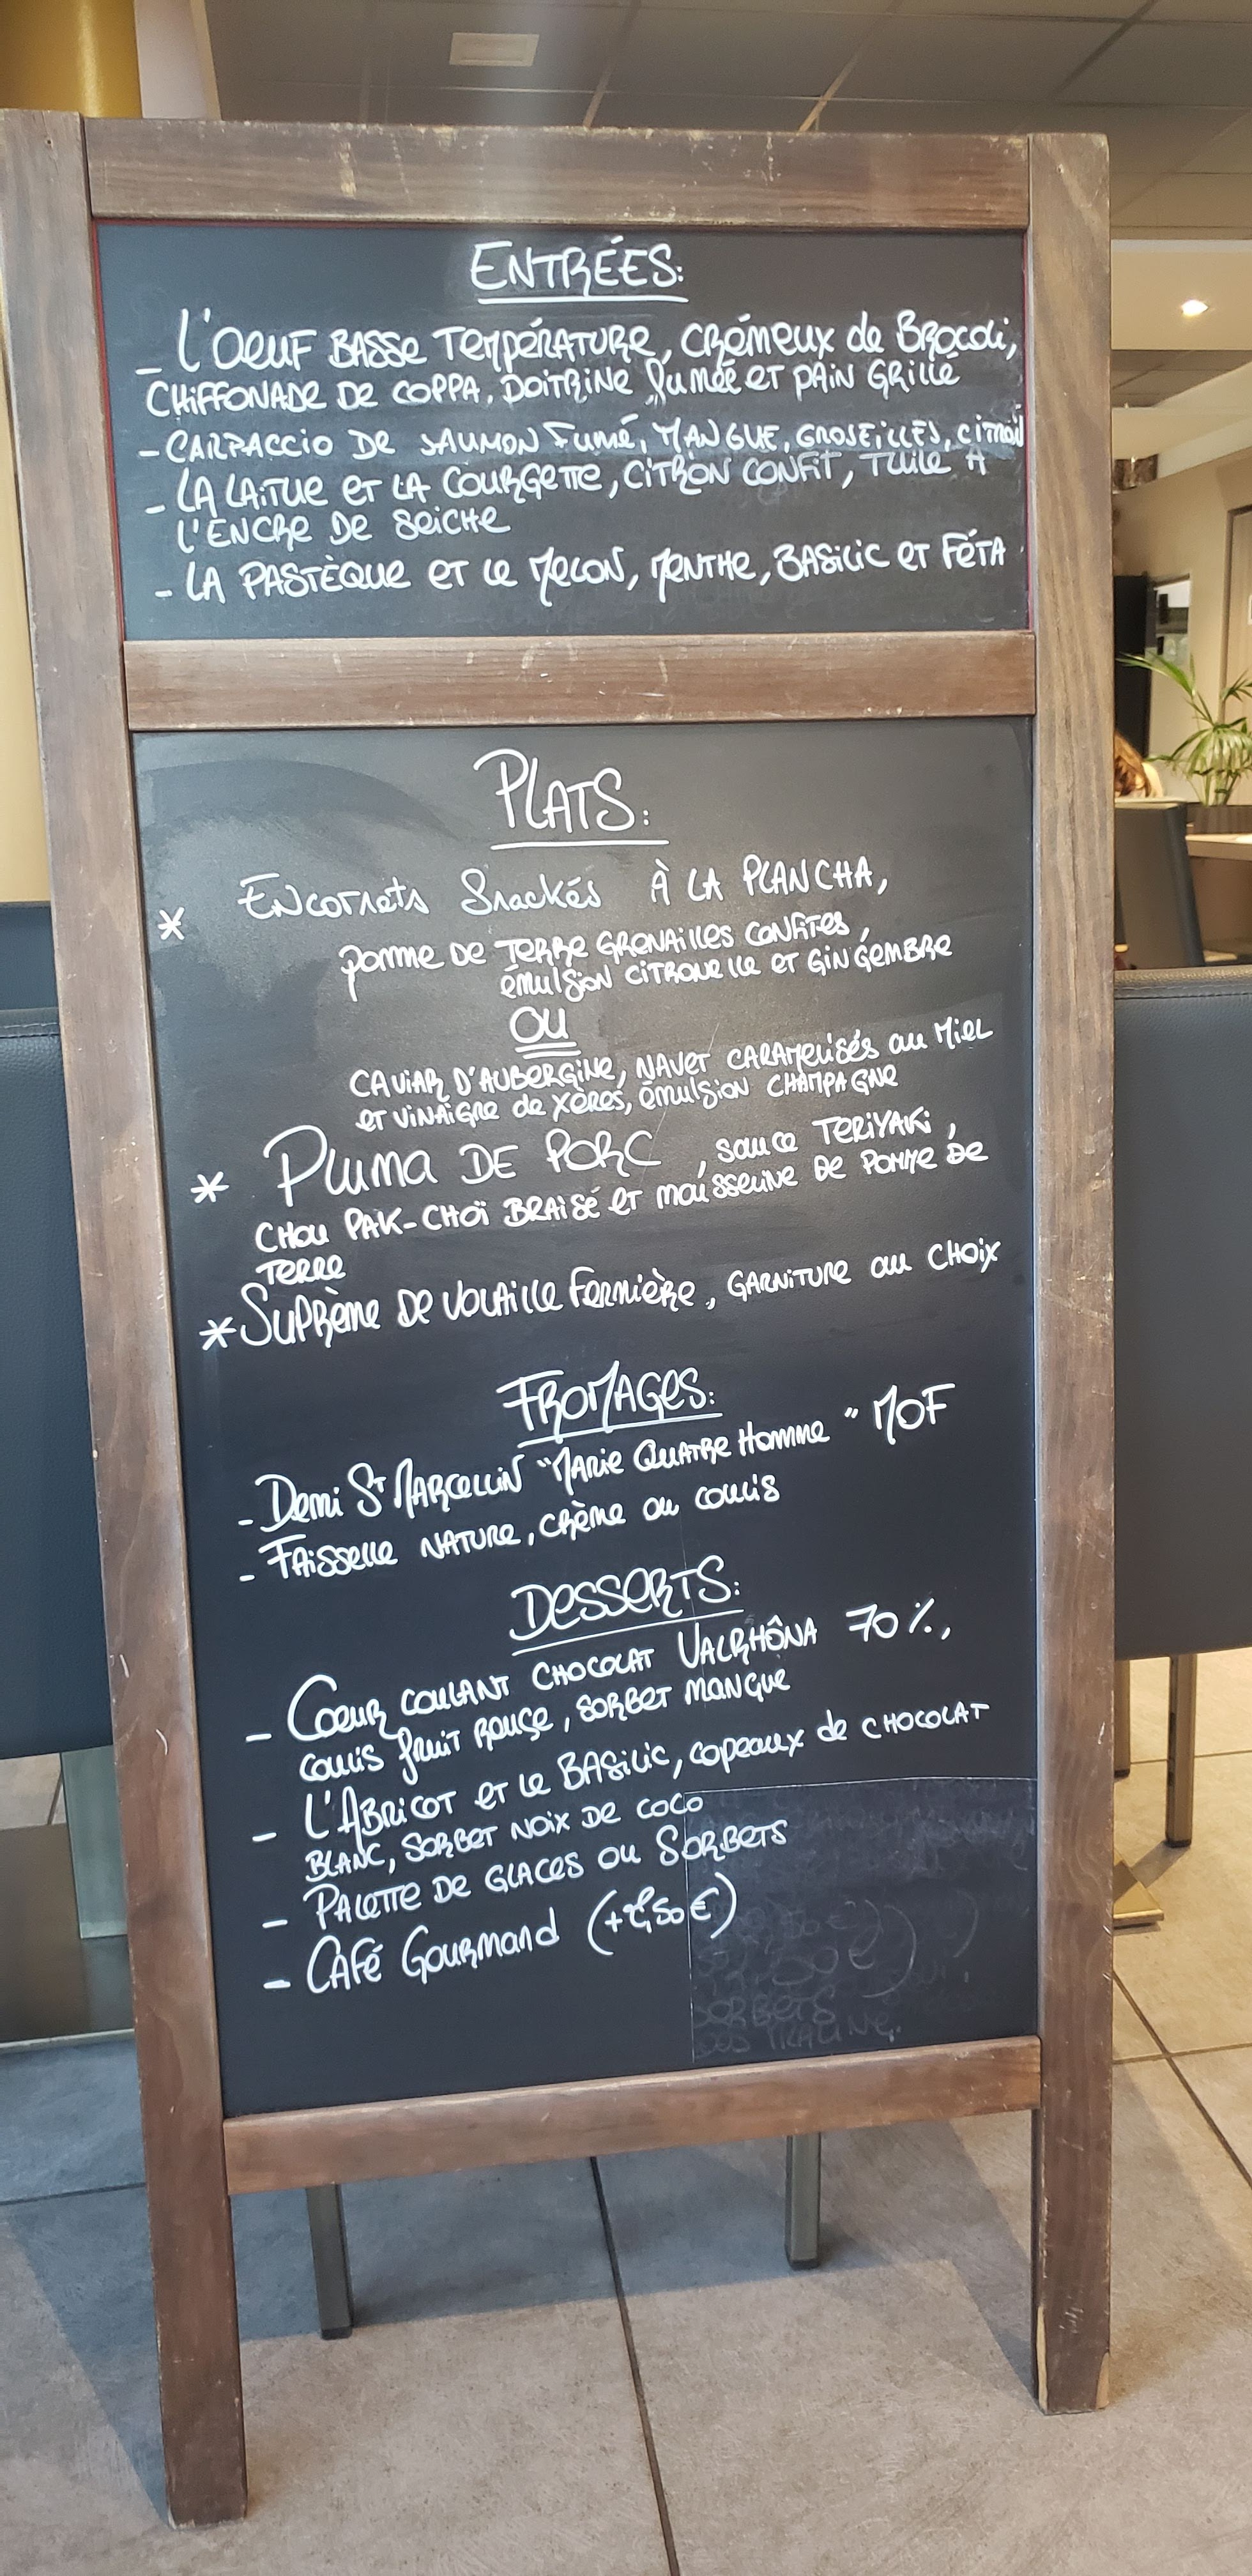 ENTRÉES:
- L'OEUF BASSE TEMPÉRATURE, CRÉMEUX de BROCOLI,
CHIFFONADE DE COPPA, POITRINE fumée ET PAIN GRILLÉ
- CARPACCIO DE SAUMON FUMÉ, MANGUE, GROSEILLES,
- LA LAITUE ET LA COURGETTE, CITRON CONFIT, TUILE À
L'ENCRE DE SEICHE
- LA PASTÈQUE ET LE MELON, MENTHE, BASILIC ET FÉTA
PLATS:
* ENCORNETS SNACKÉS À LA PLANCHA,
POMME DE TERRE GRENAILLES CONFITES,
ÉMULSION CITRONELLE ET GINGEMBRE
OU
CAVIAR D'AUBERGINE, NAVET CARAMELISÉS au MIEL
ET VINAIGRE de XÉRES, ÉMULSION CHAMPAGNE
* PLUMA DE PORC, sauce TERIYAKI,
CHOU PAK-CHOÏ BRAISÉ ET MOUSSELINE DE POMME DE
TERRE
* SUPRÊME DE VOLAILLE FERMIÈRE, GARNITURE au CHOIX
FROMAGES:
- Demi ST MARCELLIN "MARIE QUATRE HOMME" MOF
- FAISSELLE NATURE, CRÈME OU COULIS
DESSERTS:
- COEUR COULANT CHOCOLAT VALRHÔNA 70%,
COULIS fRUIT ROUGE, SORBET MANGUE
- L'ABRICOT ET LE BASILIC, COPEAUX de CHOCOLAT
BLANC, SORBET NOIX DE COCO
- PALETTE DE GLACES OU SORBETS
- CAFÉ GOURMAND
SORBETS